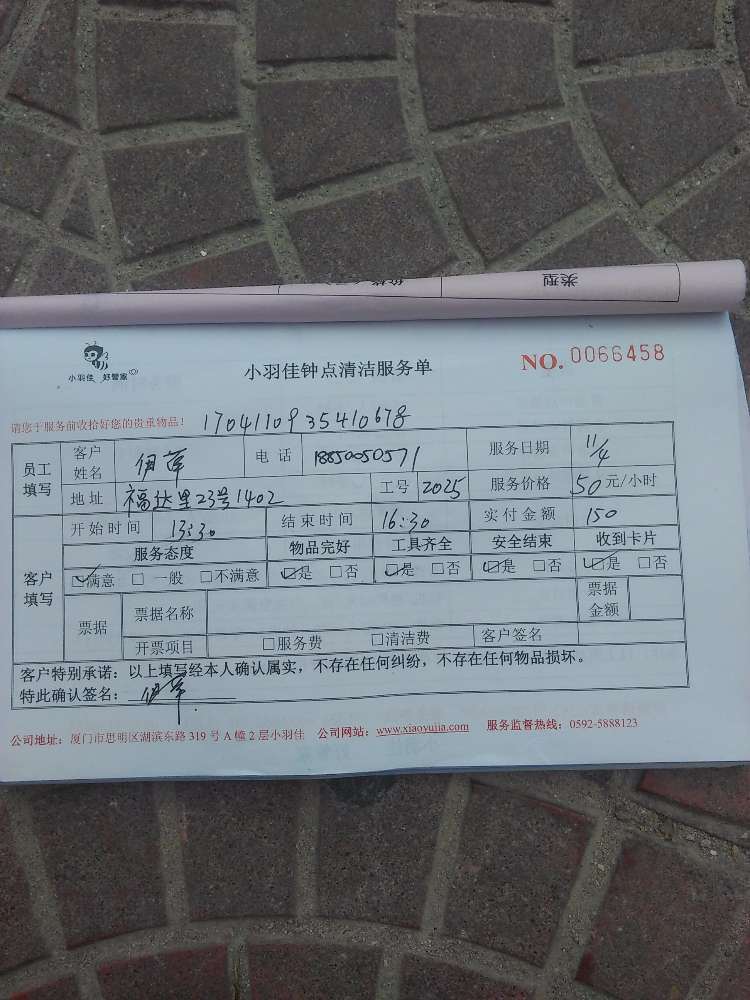 类型
小羽佳 好管家
小羽佳钟点清洁服务单
NO. 0066458
请您于服务前收拾好您的贵重物品! 1704110935410678
员工填写 客户姓名 伊萍 电话 18850050571 服务日期 11/4
地址 福达里23号1402 工号 2025 服务价格 50元/小时
客户填写 开始时间 13:30 结束时间 16:30 实付金额 150
服务态度 物品完好 工具齐全 安全结束 收到卡片
☑满意 □一般 □不满意 ☑是 □否 ☑是 □否 ☑是 □否 ☑是 □否
票据 票据名称 票据金额
开票项目 □服务费 □清洁费 客户签名
客户特别承诺：以上填写经本人确认属实，不存在任何纠纷，不存在任何物品损坏。
特此确认签名： 伊萍
公司地址：厦门市思明区湖滨东路 319 号 A 幢 2 层小羽佳 公司网站：www.xiaoyujia.com 服务监督热线：0592-5888123